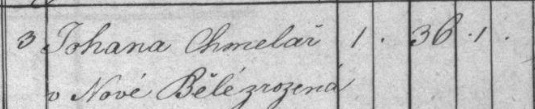 3 Johana Chmelař 1. 36.1.
v Nové Bělé zrozená